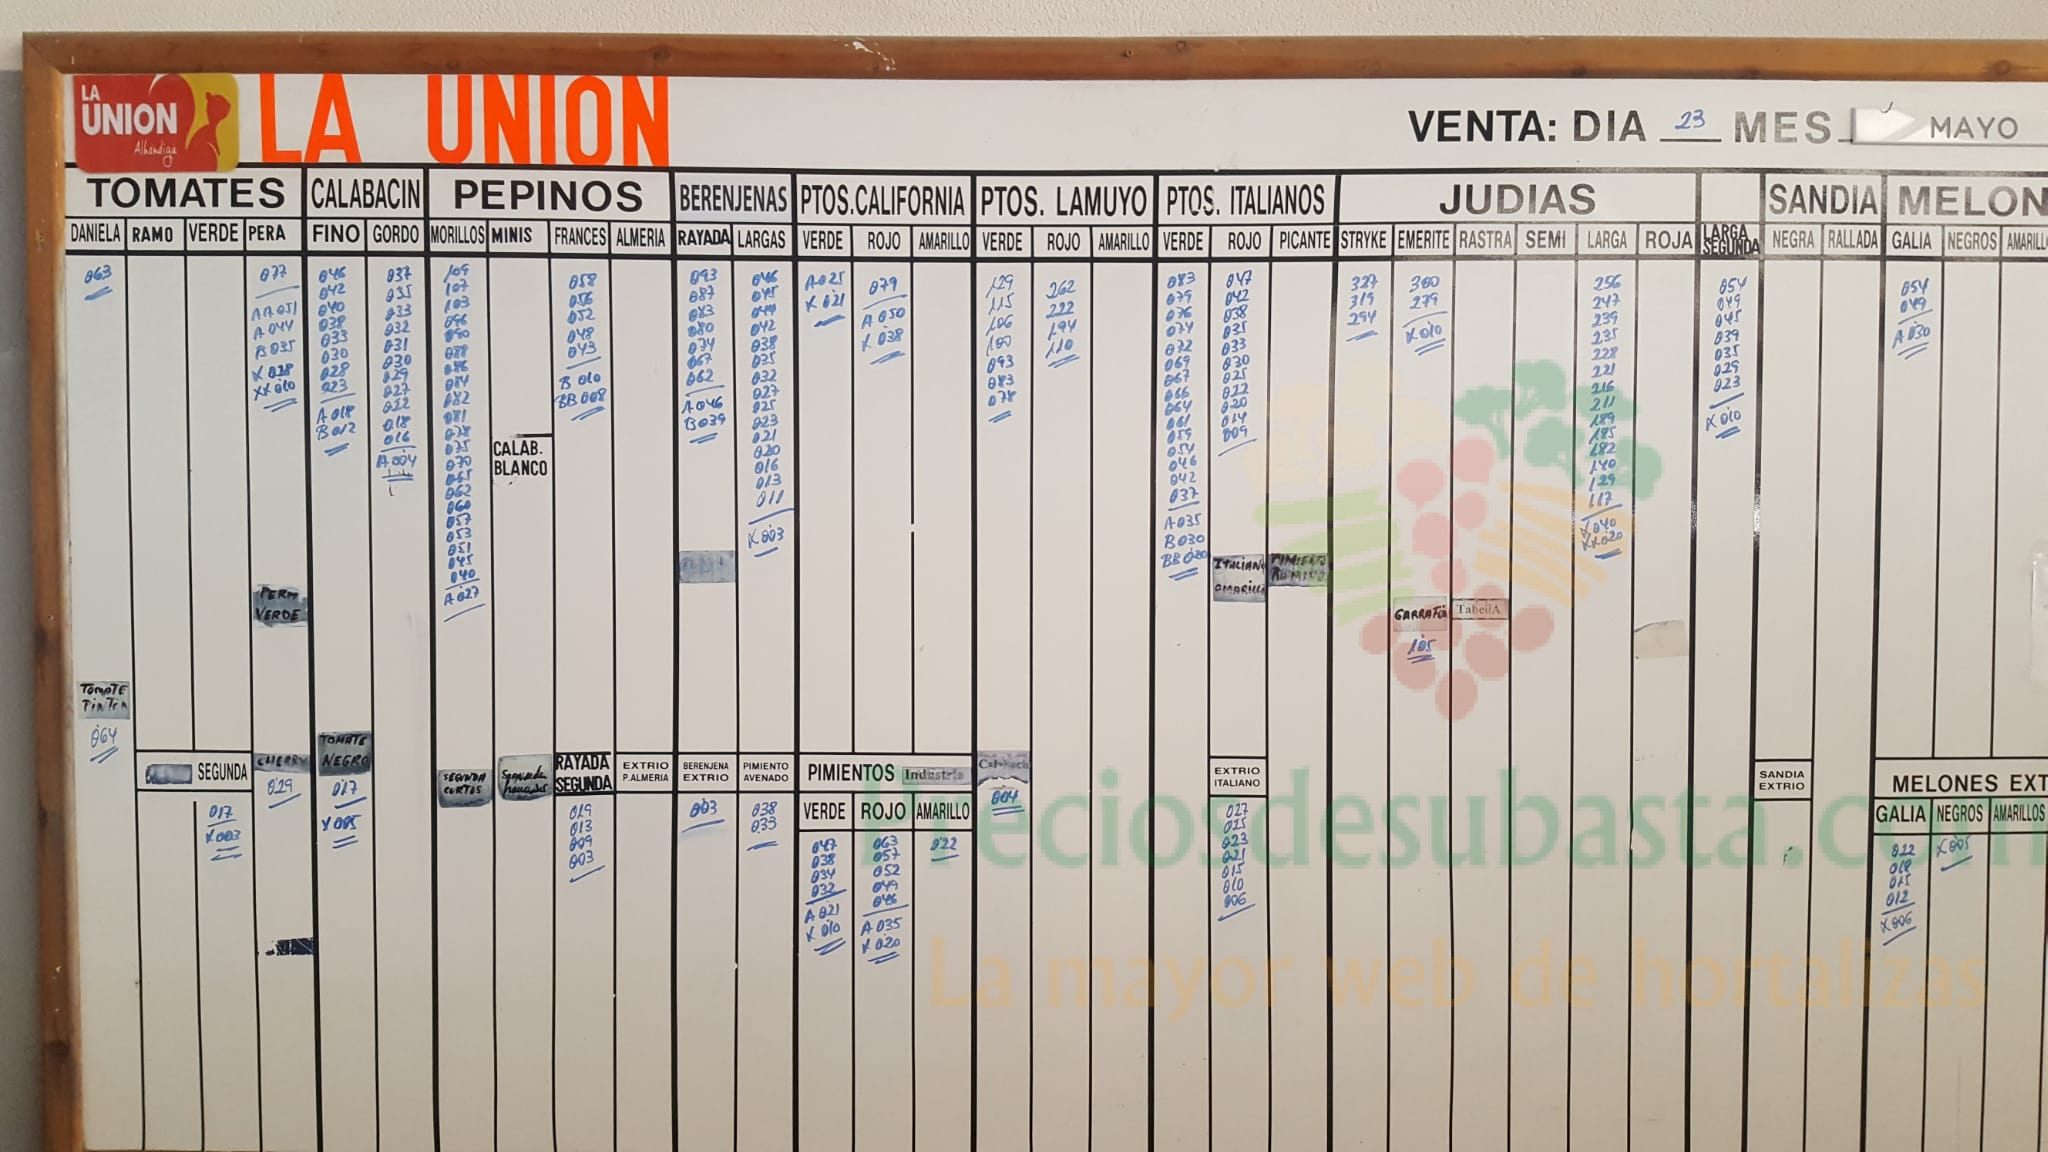 LA UNION Alhóndiga
LA UNION
VENTA: DIA 23 MES MAYO
TOMATES CALABACIN PEPINOS BERENJENAS PTOS.CALIFORNIA PTOS. LAMUYO PTOS. ITALIANOS JUDIAS SANDIA MELON
DANIELA RAMO VERDE PERA FINO GORDO MORILLOS MINIS FRANCES ALMERIA RAYADA LARGAS VERDE ROJO AMARILLO VERDE ROJO AMARILLO VERDE ROJO PICANTE STRYKE EMERITE RASTRA SEMI LARGA ROJA LARGA SEGUNDA NEGRA RALLADA GALIA NEGROS AMARILL
063
077
AA051
A044
B035
X028
XX010
046
042
040
038
033
030
028
023
A018
B012
037
035
033
032
031
030
029
027
022
018
016
A004
109
107
103
096
090
088
086
084
082
081
078
075
070
065
062
060
057
053
051
045
040
A027
CALAB.
BLANCO
058
056
052
048
043
B010
BB008
093
087
083
080
074
067
062
A046
B039
046
045
044
042
038
035
032
027
025
023
021
020
016
013
011
X003
A025
X021
079
A050
X038
129
115
106
100
093
083
078
262
222
194
110
083
079
076
074
072
069
067
066
064
061
059
054
046
042
037
A035
B030
BB020
047
042
038
035
033
030
025
022
020
014
009
ITALIANO
AMARILLO
PIMIENTO
327
319
294
300
279
X010
GARRAFA
105
TabellA
256
247
239
235
228
221
216
211
189
185
182
140
129
117
X040
XX020
054
049
045
039
035
029
023
X010
054
049
A030
PERA
VERDE
TOMATE
PinTon
064
SEGUNDA
017
X003
CHERRY
029
TOMATE
NEGRO
017
X005
SEGUNDA
CORTOS
Segunda
RAYADA
SEGUNDA
019
013
009
003
EXTRIO
P.ALMERIA
BERENJENA
EXTRIO
003
PIMIENTO
AVENADO
038
033
PIMIENTOS Industria
VERDE ROJO AMARILLO
047
038
034
032
A021
X010
063
057
052
049
046
A035
X020
022
004
EXTRIO
ITALIANO
027
025
023
021
015
010
006
SANDIA
EXTRIO
MELONES EXT
GALIA NEGROS AMARILLOS
022
018
015
012
X006
X005
Preciosdesubasta.com
La mayor web de hortalizas